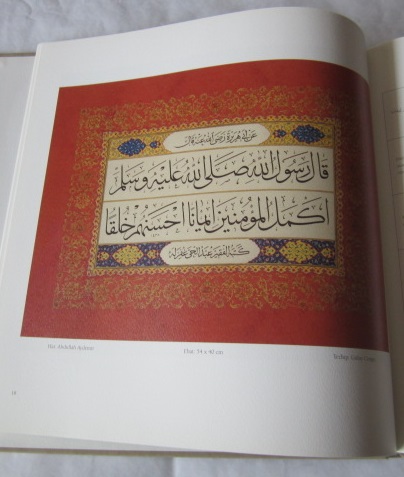 عن أبي هريرة رضي الله عنه قال
قال رسول الله صلى الله عليه وسلم
أكمل المؤمنين إيمانا أحسنهم خلقا
كتبه الفقير عبد الحق غفر له
Ebat: 74 x 92 cm